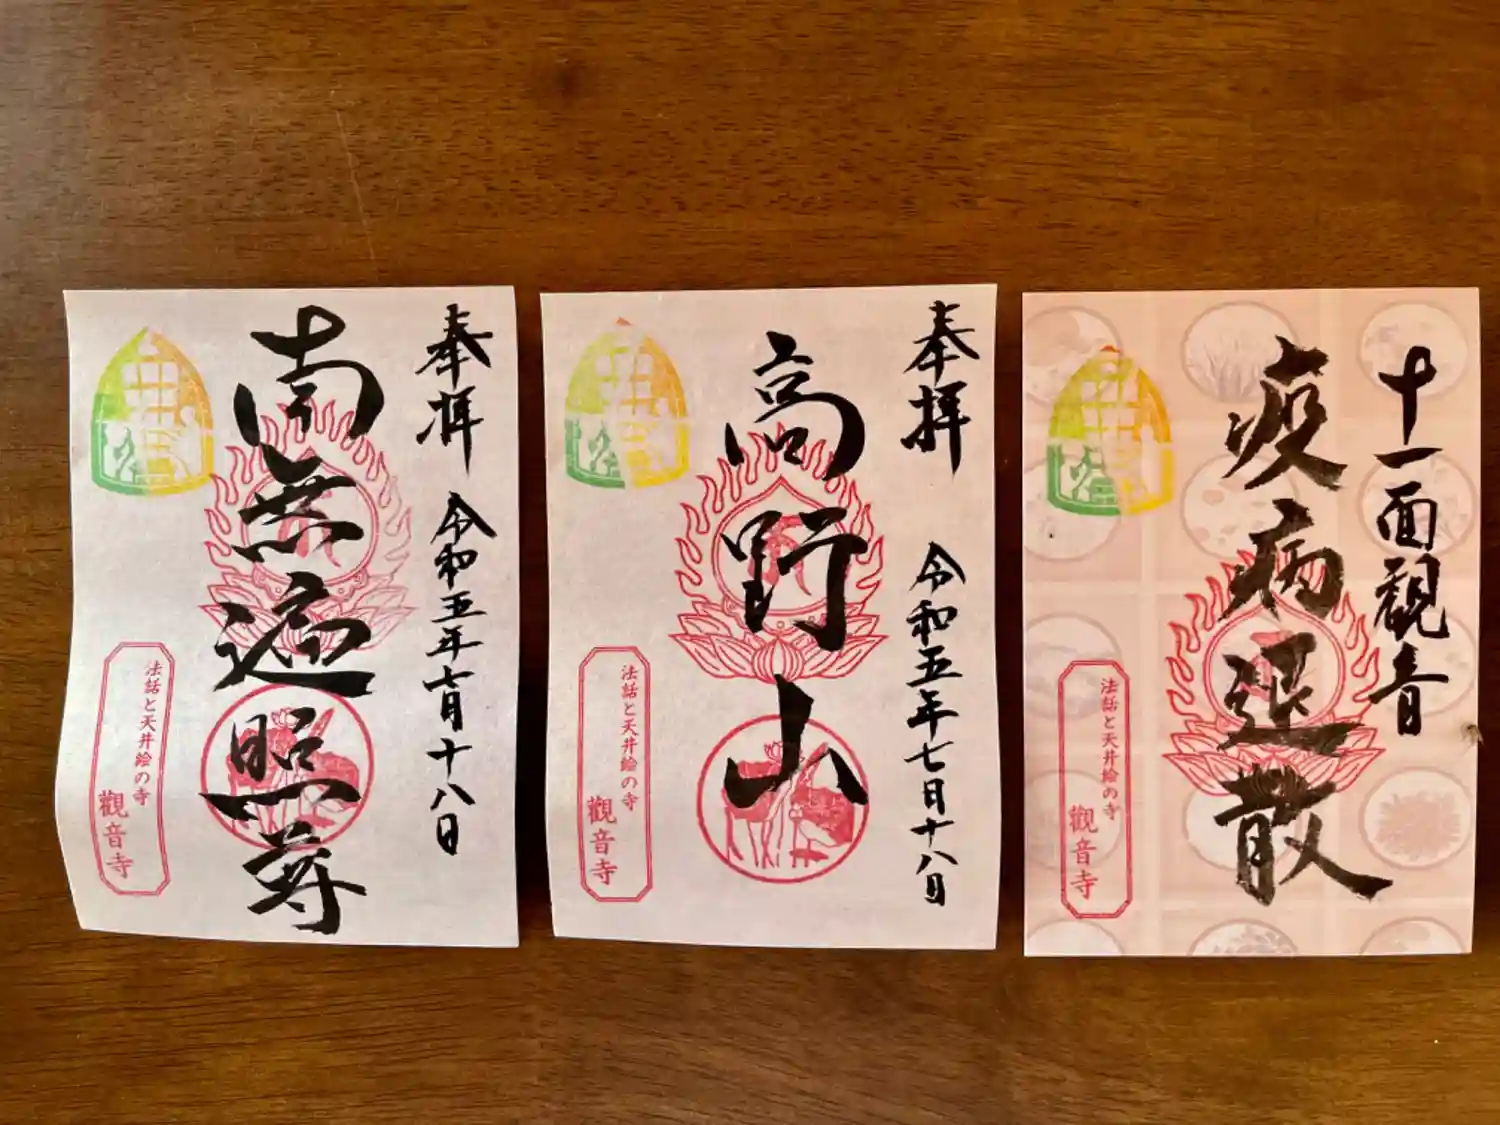 奉拝
令和五年七月十八日
南無遍照尊
法話と天井絵の寺
觀音寺
奉拝
令和五年七月十八日
高野山
法話と天井絵の寺
觀音寺
十一面観音
疫病退散
法話と天井絵の寺
觀音寺